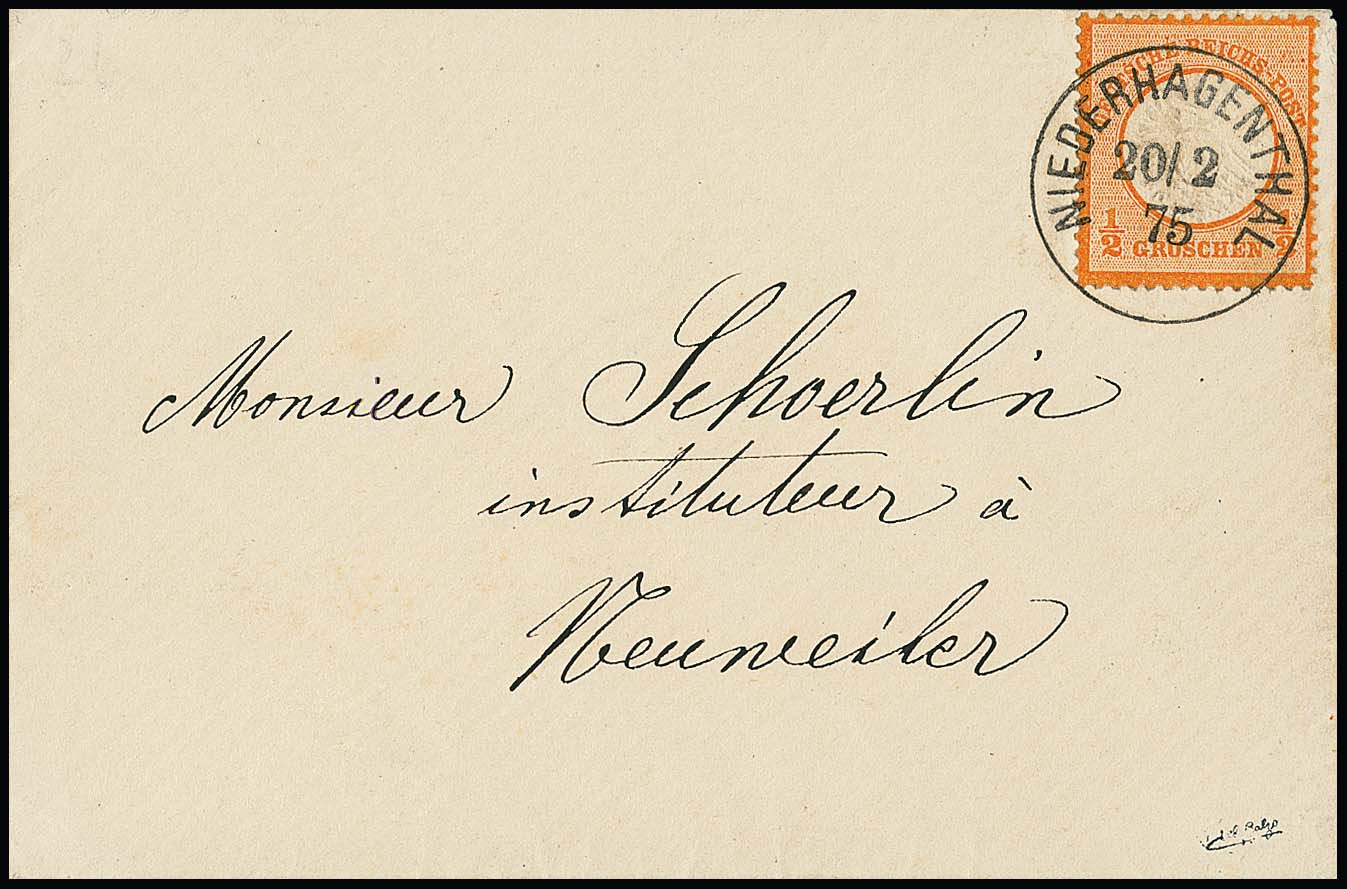 DEUTSCHE REICHS-POST
NIEDERHAGENTHAL
20/2
75
1/2 GROSCHEN 1/2
Monsieur Schoerlin
instituteur à
Neuweiler